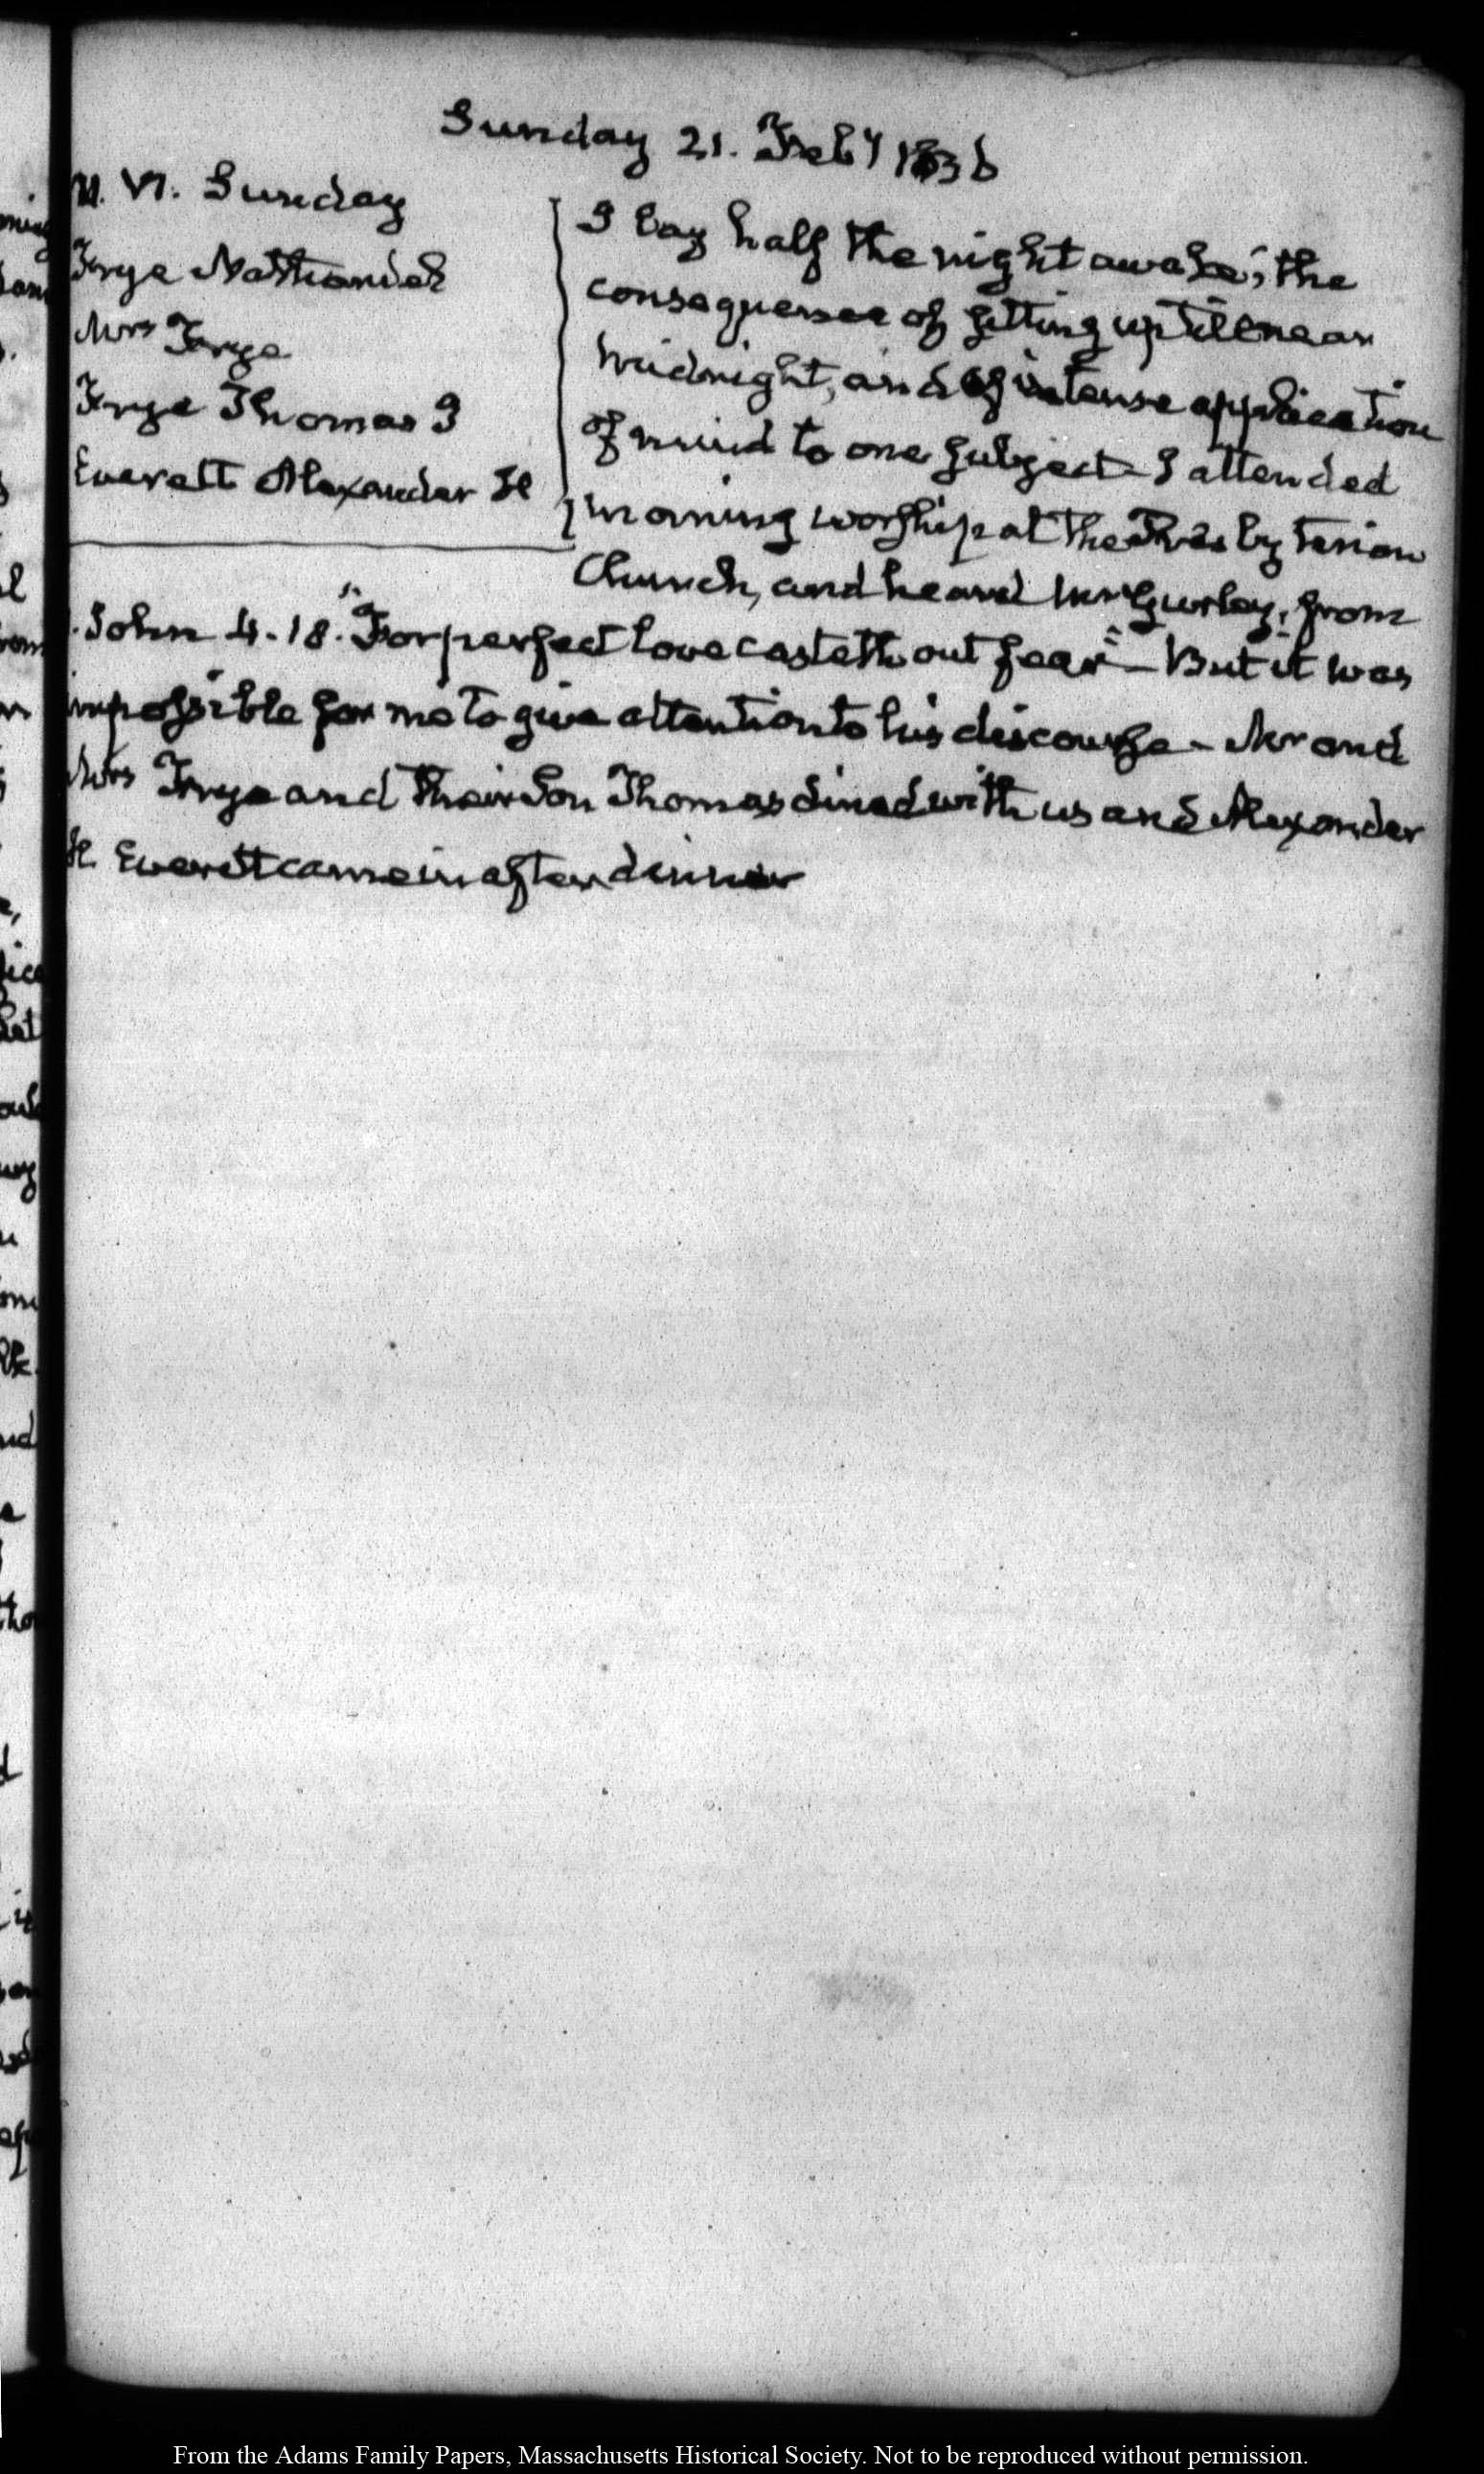 Sunday 21. Feby 1836
VI. Sunday
Frye Nathaniel
Mrs Frye
Frye Thomas J
Everett Alexander H
I lay half the night awake; the
consequence of sitting up till near
midnight, and of intense application
of mind to one subject - I attended
morning worship at the Presbyterian
Church, and heard Mr Gurley, from
1. John 4.18. "For perfect love casteth out fear" - But it was
impossible for me to give attention to his discourse - Mr and
Mrs Frye and their Son Thomas dined with us and Alexander
H. Everett came in after dinner
From the Adams Family Papers, Massachusetts Historical Society. Not to be reproduced without permission.